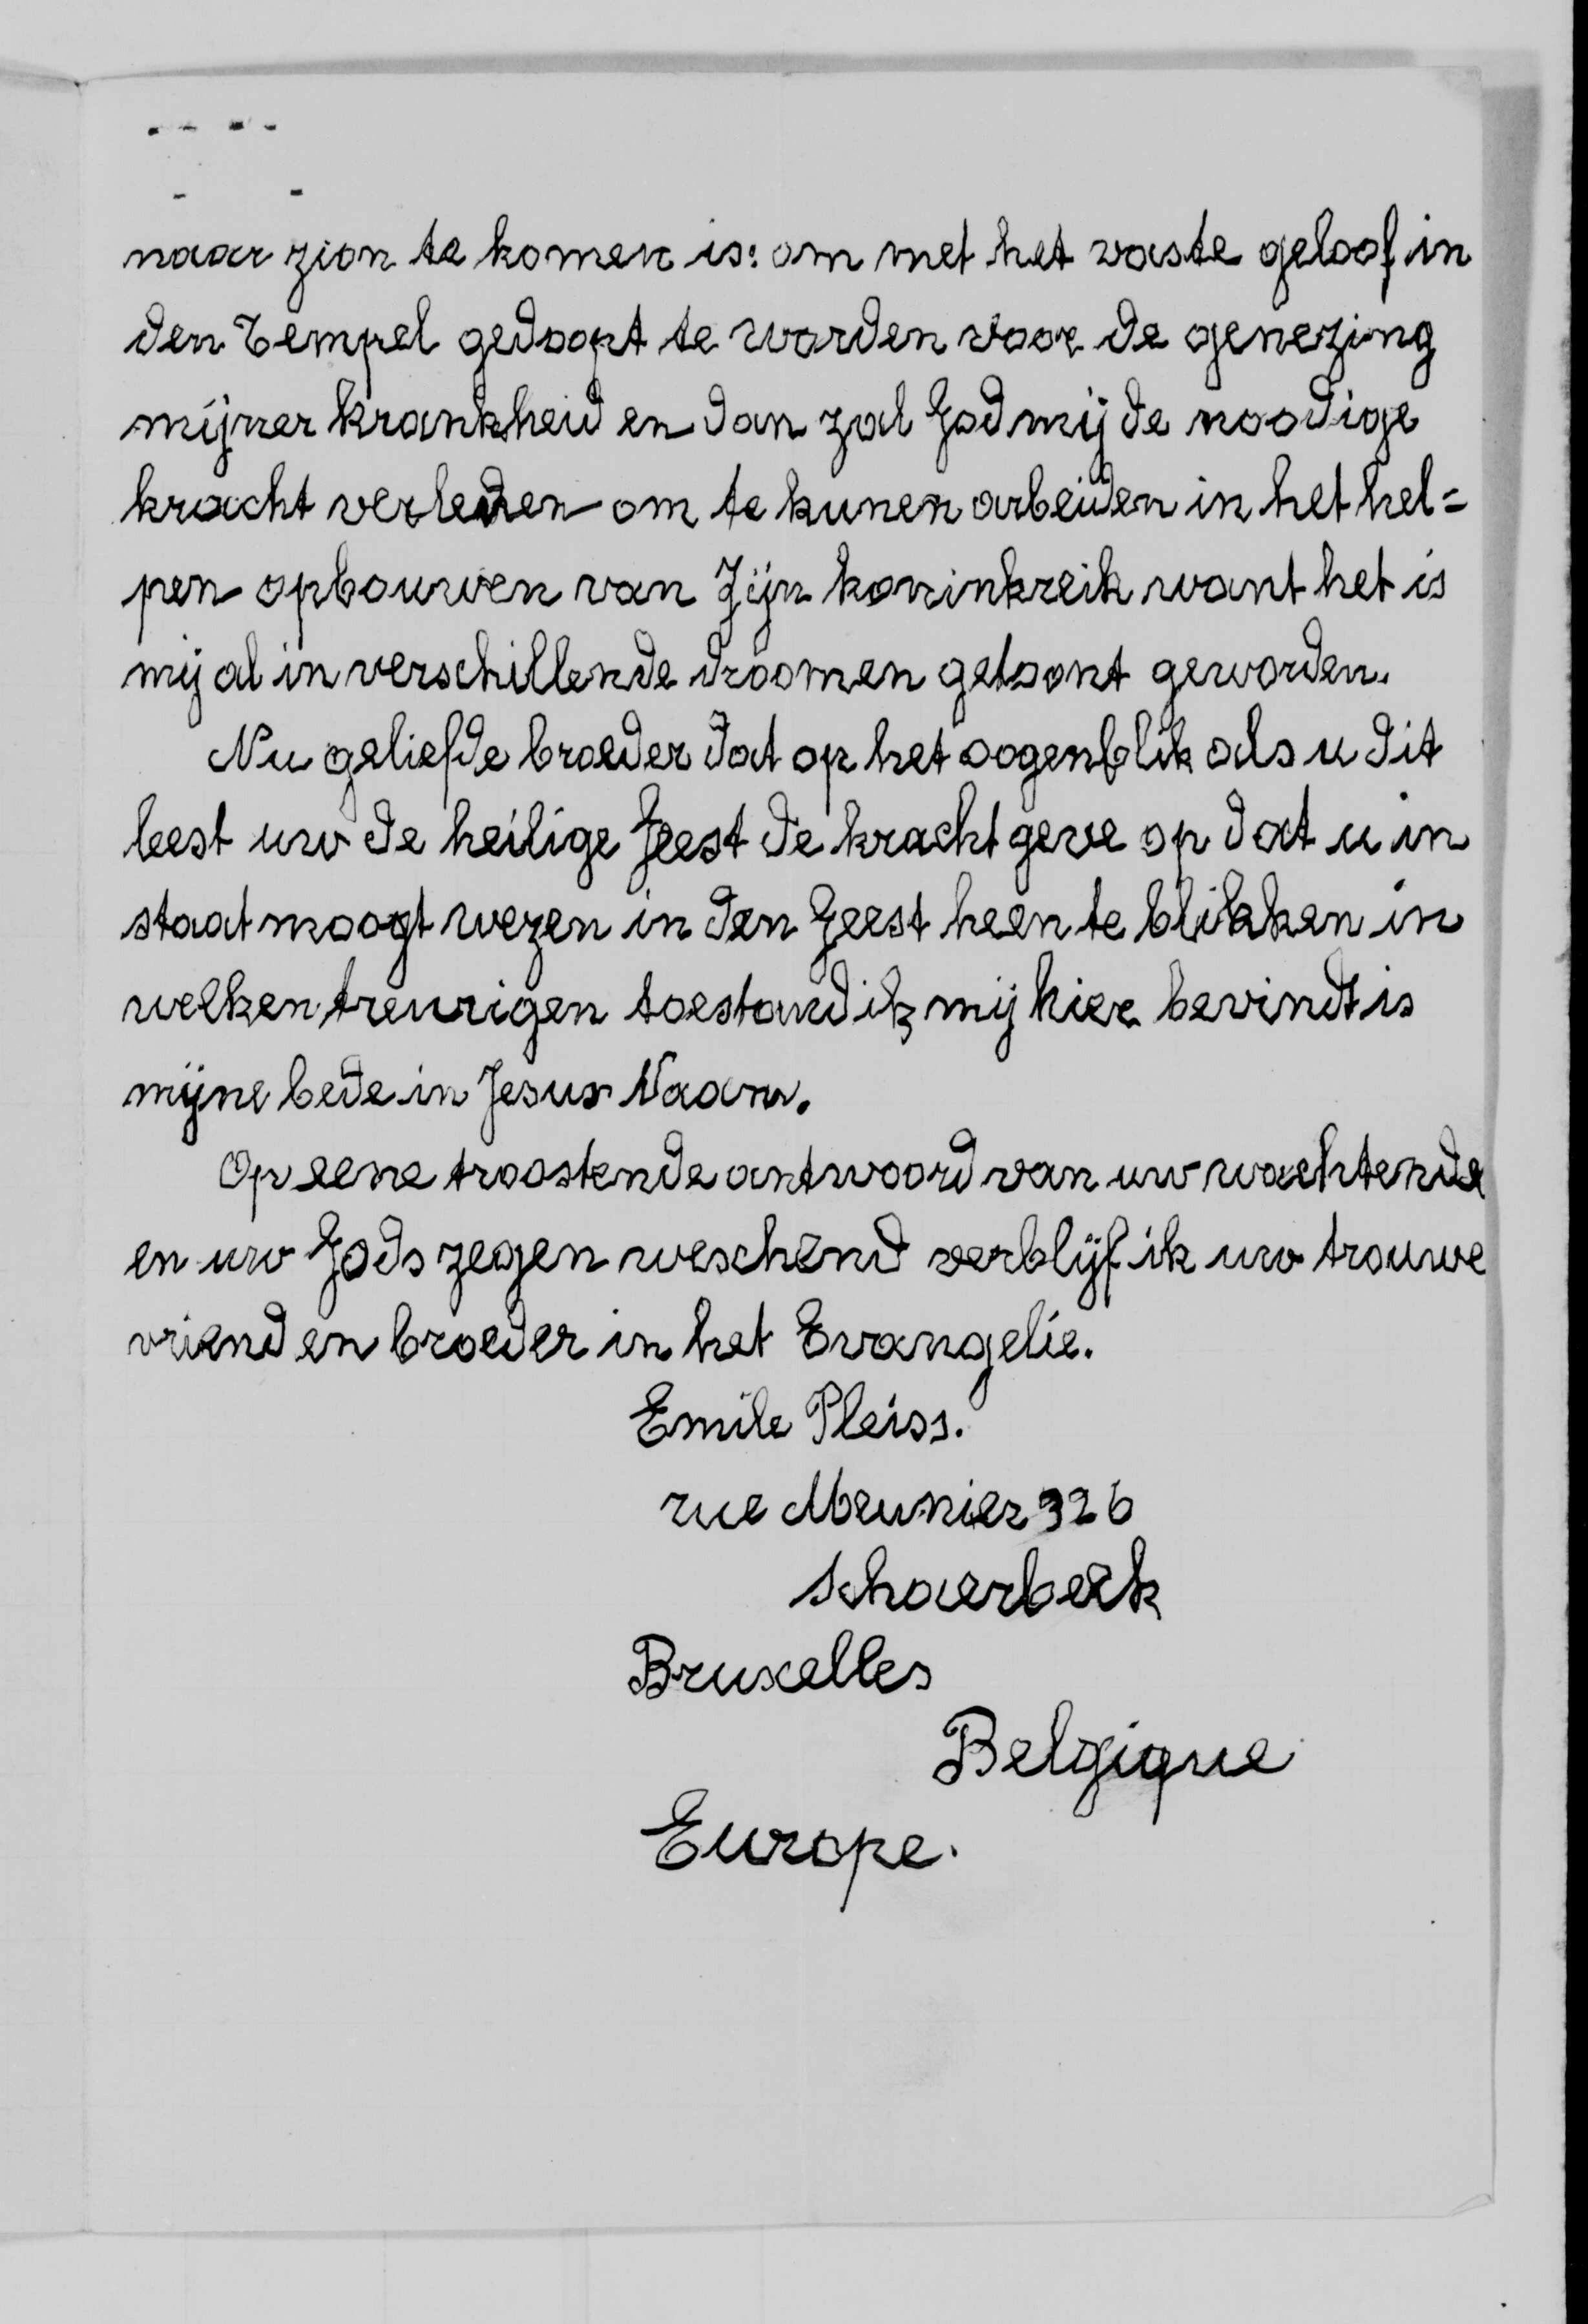 naar zion te komen is: om met het vaste geloof in
den Tempel gedoopt te worden voor de genezing
mijner krankheid en dan zal God mij de noodige
kracht verlenen om te kunen arbeiden in het hel=
pen opbouwen van Zijn koninkreik want het is
mij al in verschillende droomen getoont geworden.
Nu geliefde broeder dat op het oogenblik als u dit
leest uw de heilige Geest de kracht geve op dat u in
staat moogt wezen in den Geest heen te blikken in
welken treurigen toestand ik mij hier bevindt is
mijne bede in Jesus Naam.
Op eene troostende antwoord van uw wachtende
en uw Gods zegen weschend verblijf ik uw trouwe
vriend en broeder in het Evangelie.
Emile Pleiss.
rue Meunier 326
Schaerbeek
Bruxelles
Belgique
Europe.